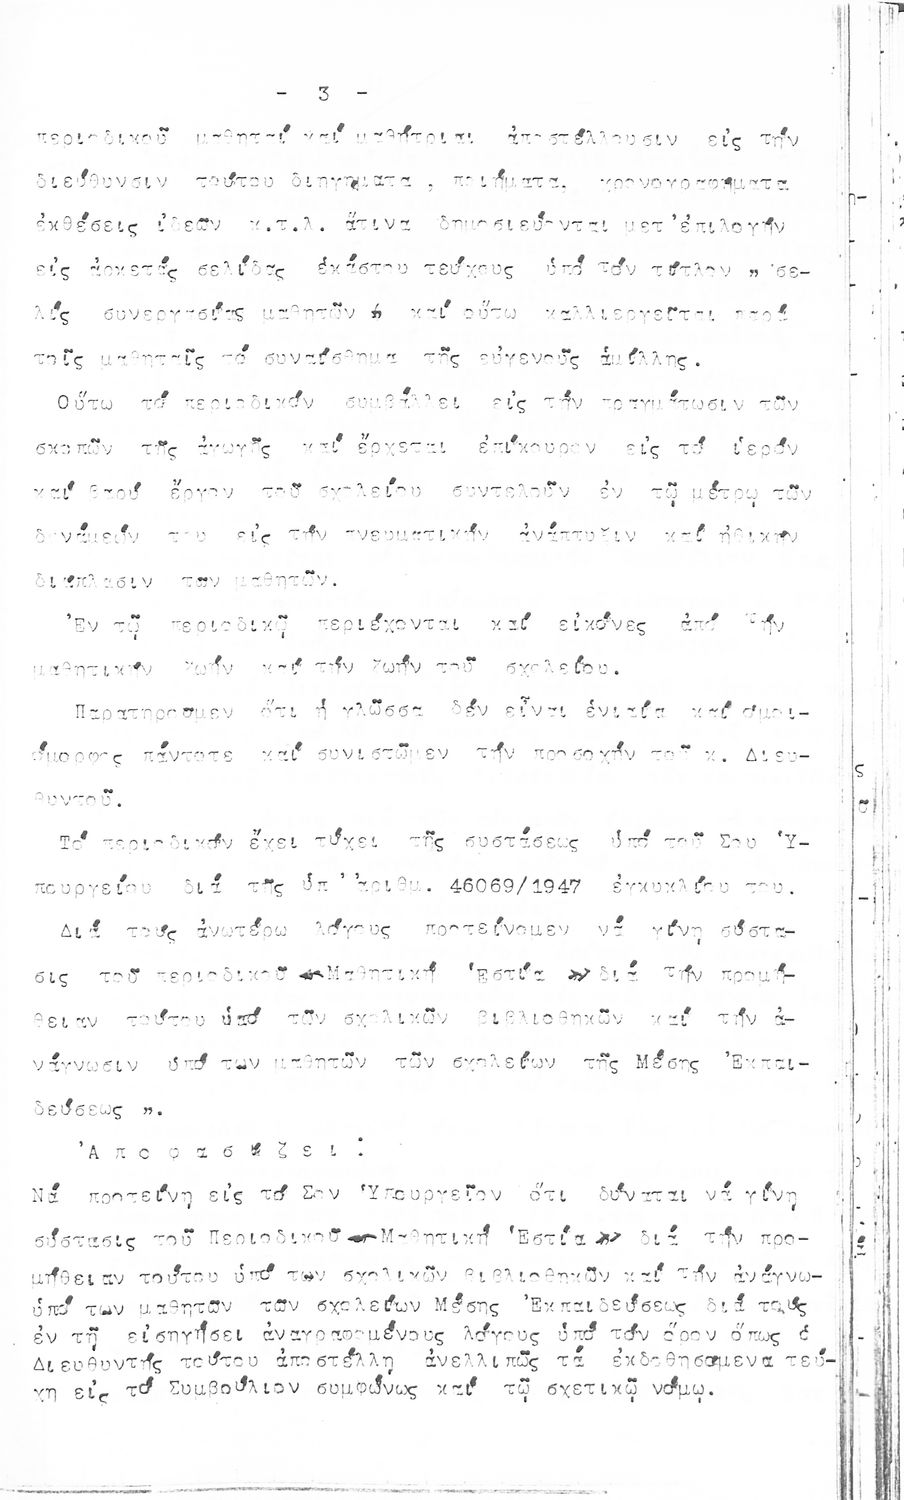 - 3 -
περιοδικοῦ μαθηταί καί μαθήτριαι ἀποστέλλουσιν εἰς τήν
διεύθυνσιν τούτου διηγηματα , ποιήματα, χρονογραφήματα
ἐκθέσεις ἰδεῶν κ.τ.λ. ἅτινα δημοσιεύονται μετ'ἐπιλογήν
εἰς ἀρκετάς σελίδας ἑκάστου τεύχους ὑπό τόν τίτλον " σε-
λίς συνεργασίας μαθητῶν " καί οὕτω καλλιεργεῖται παρά
τοῖς μαθηταῖς τό συναίσθημα τῆς εὐγενοῦς ἁμίλλης.
Οὕτω τό περιοδικόν συμβάλλει εἰς τήν πραγμάτωσιν τῶν
σκοπῶν τῆς ἀγωγῆς καί ἔρχεται ἐπίκουρον εἰς τό ἱερόν
καί βαρύ ἔργον τοῦ σχολείου συντελοῦν ἐν τῷ μέτρῳ τῶν
δυνάμεών του εἰς τήν πνευματικήν ἀνάπτυξιν καί ἠθικήν
διάπλασιν των μαθητῶν.
Ἐν τῷ περιοδικῷ περιέχονται καί εἰκόνες ἀπό τήν
μαθητικήν ζωήν καί τήν ζωήν τοῦ σχολείου.
Παρατηροῦμεν ὅτι ἡ γλῶσσα δέν εἶναι ἑνιαία καί ὁμοι-
όμορφος πάντοτε καί συνιστῶμεν τήν προσοχήν τοῦ κ. Διευ-
θυντοῦ.
Τό περιοδικόν ἔχει τύχει τῆς συστάσεως ὑπό τοῦ Σου Ὑ-
πουργείου διά τῆς ὑπ' ἀριθμ. 46069/1947 ἐγκυκλίου του.
Διά τούς ἀνωτέρω λόγους προτείνομεν νά γίνῃ σύστα-
σις τοῦ περιοδικοῦ « Μαθητική Ἑστία » διά τήν προμή-
θειαν τούτου ὑπό τῶν σχολικῶν βιβλιοθηκῶν καί τήν ἀ-
νάγνωσιν ὑπό των μαθητῶν τῶν σχολείων τῆς Μέσης Ἐκπαι-
δεύσεως ".
Ἀ π ο φ α σ ί ζ ε ι :
Νά προτείνῃ εἰς τό Σον Ὑπουργεῖον ὅτι δύναται νά γίνῃ
σύστασις τοῦ Περιοδικοῦ « Μαθητική Ἑστία » διά τήν προ-
μήθειαν τούτου ὑπό των σχολικῶν βιβλιοθηκῶν καί τήν ἀνάγνω-
ὑπό των μαθητῶν τῶν σχολείων Μέσης Ἐκπαιδεύσεως διά τούς
ἐν τῇ εἰσηγήσει ἀναγραφομένους λόγους ὑπό τόν ὅρον ὅπως ὁ
Διευθυντής τούτου ἀποστέλλῃ ἀνελλιπῶς τά ἐκδοθησόμενα τεύ-
χη εἰς τό Συμβούλιον συμφώνως καί τῷ σχετικῷ νόμῳ.